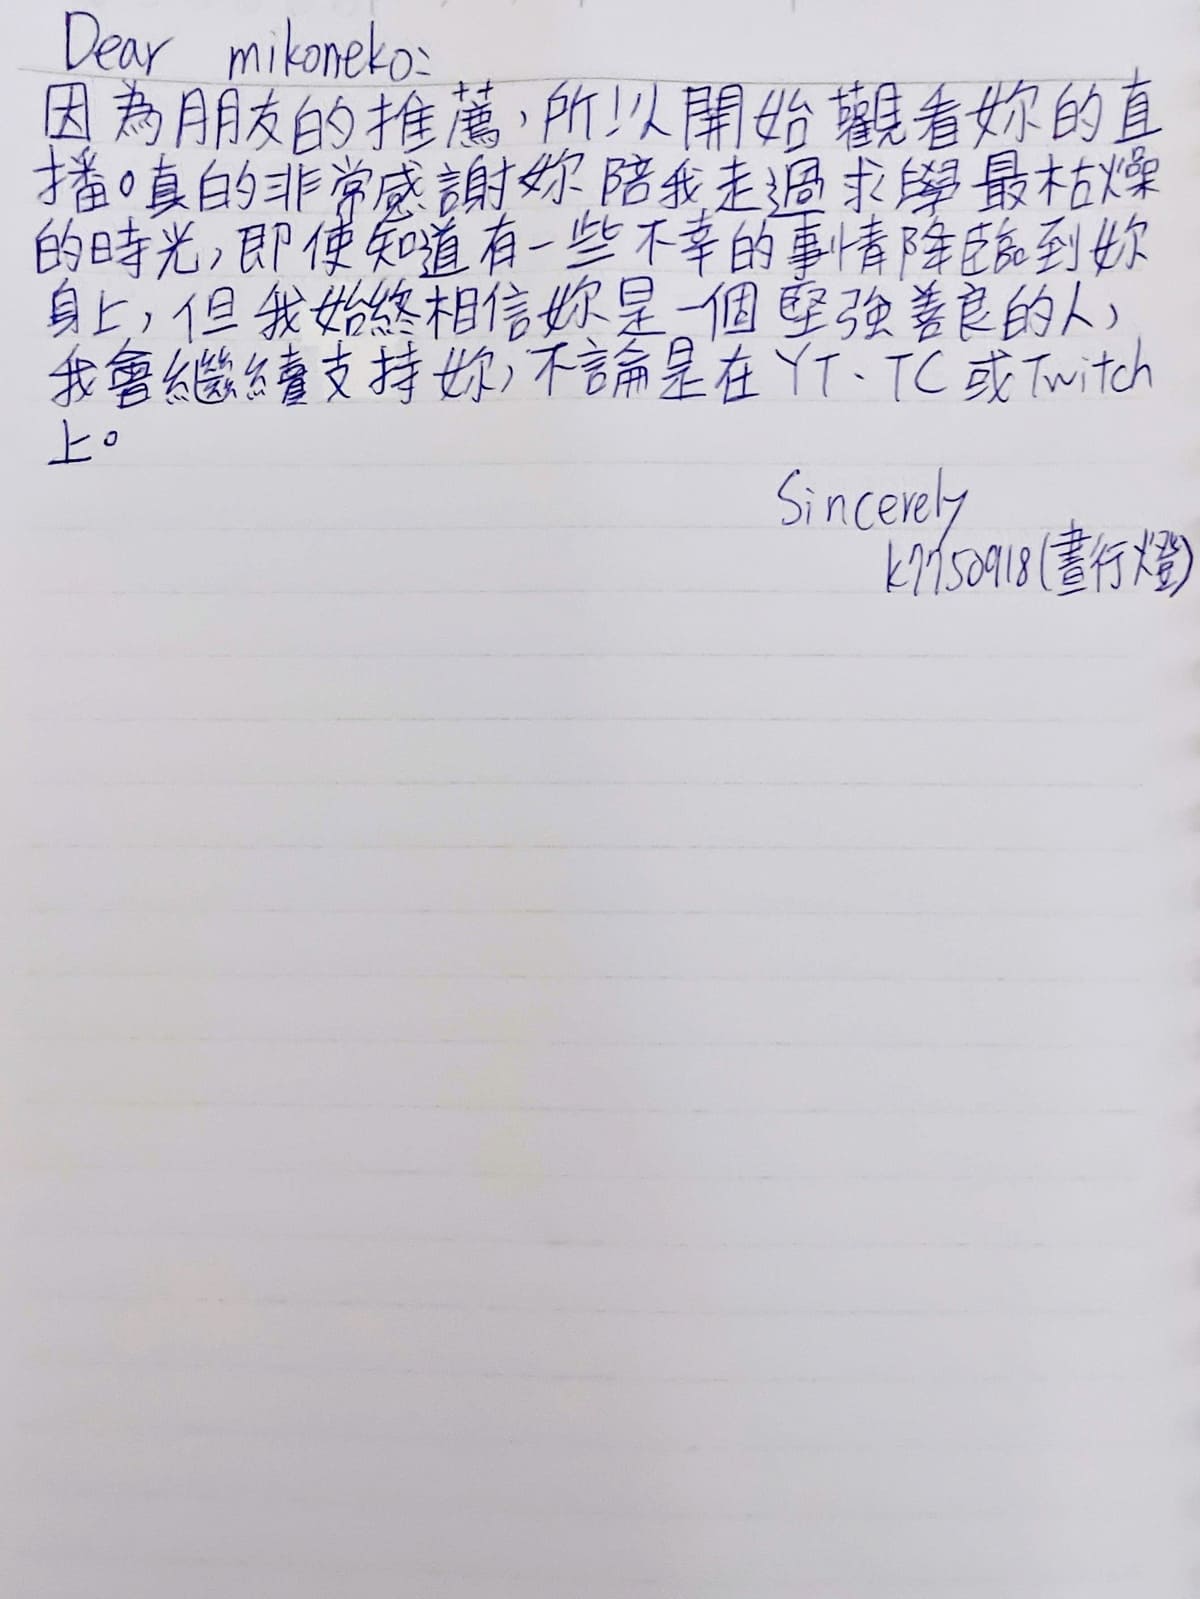 Dear mikoneko:
因為朋友的推薦，所以開始觀看妳的直
播。真的非常感謝妳陪我走過求學最枯燥
的時光，即使知道有一些不幸的事情降臨到妳
身上，但我始終相信妳是一個堅強善良的人，
我會繼續支持妳，不論是在YT、TC或Twitch
上。
Sincerely
k7750918(晝行燈)